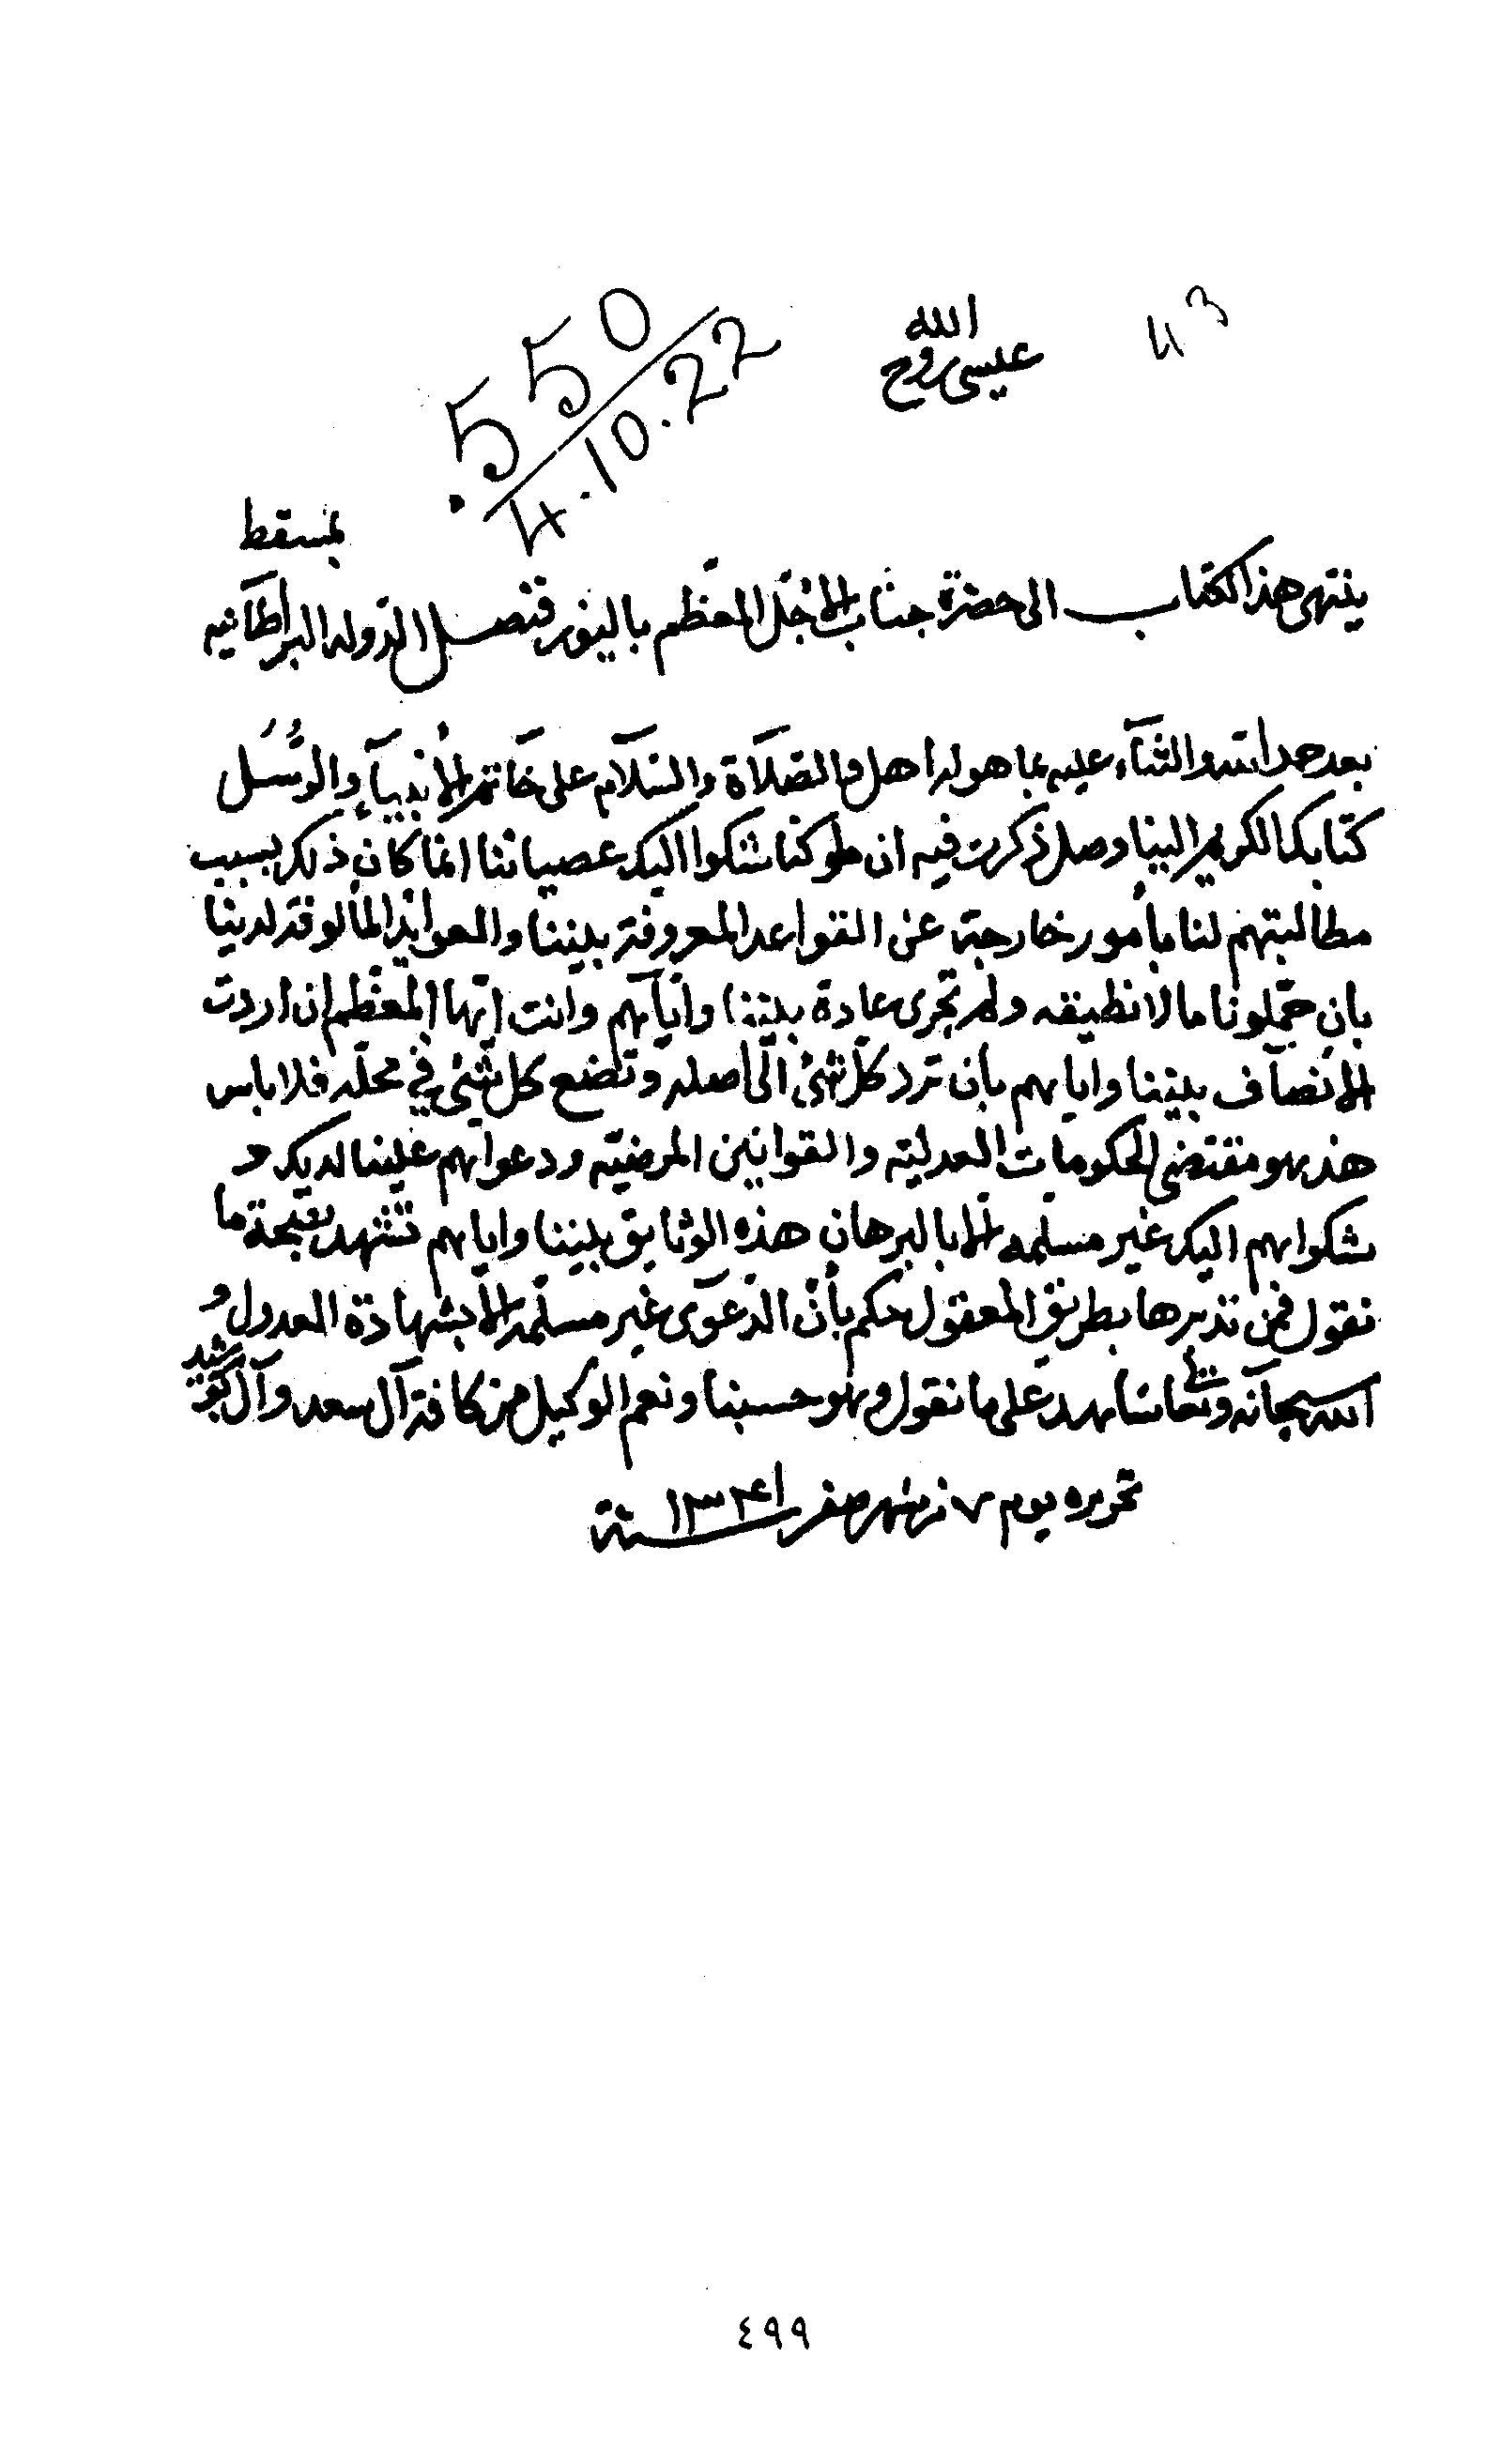 43
الله
عيسى روح
.550
4.10.22
بمسقط
ينتهى هذا الكتاب الى حضرة جناب الأجّل المعظّم باليوز قنصل الدّوله البراطانيه
بعد حمد الله والثنآء عليه بما هو له اهل والصّلاة والسّلام على خاتم الأنبيآءِ والرُّسُل
كتابك الكريم الينا وصل ذكرت فيه ان ملوكنا شكوا اليك عصياننا انما كان ذلك بسبب
مطالبتهم لنا بأمور خارجة عن القواعد المعروفة بيننا والعوايد المألوفة لدينا
بان حمّلونا ما لا نطيقه ولم تجرى عادة بيننا وايّاهم وانت ايّها المعظّم ان اردت
الانصاف بيننا واياهم بان ترد كلّ شئ الى اصله وتضع كل شئ في محلّه فلا باس
هذ هو مقتضى الحكومات العدليّه والقوانين المرضيّه ودعواهم علينا لديك و
شكواهم اليك غير مسلمه الا بالبرهان هذه الوثايق بيننا واياهم تشهد بصحة ما
نقول فمن تدبرها بطريق المعقول حكم بأنّ الدّعوى غير مسلّمه الا بشهادة العدول و
الله سبحانه وتعالى شاهد على ما نقول وهو حسبنا ونعم الوكيل من كافة آل سعد وآل
رشيد
تحريره يوم ٧ من شهر صفر سنة ١٣٤١
٤٩٩